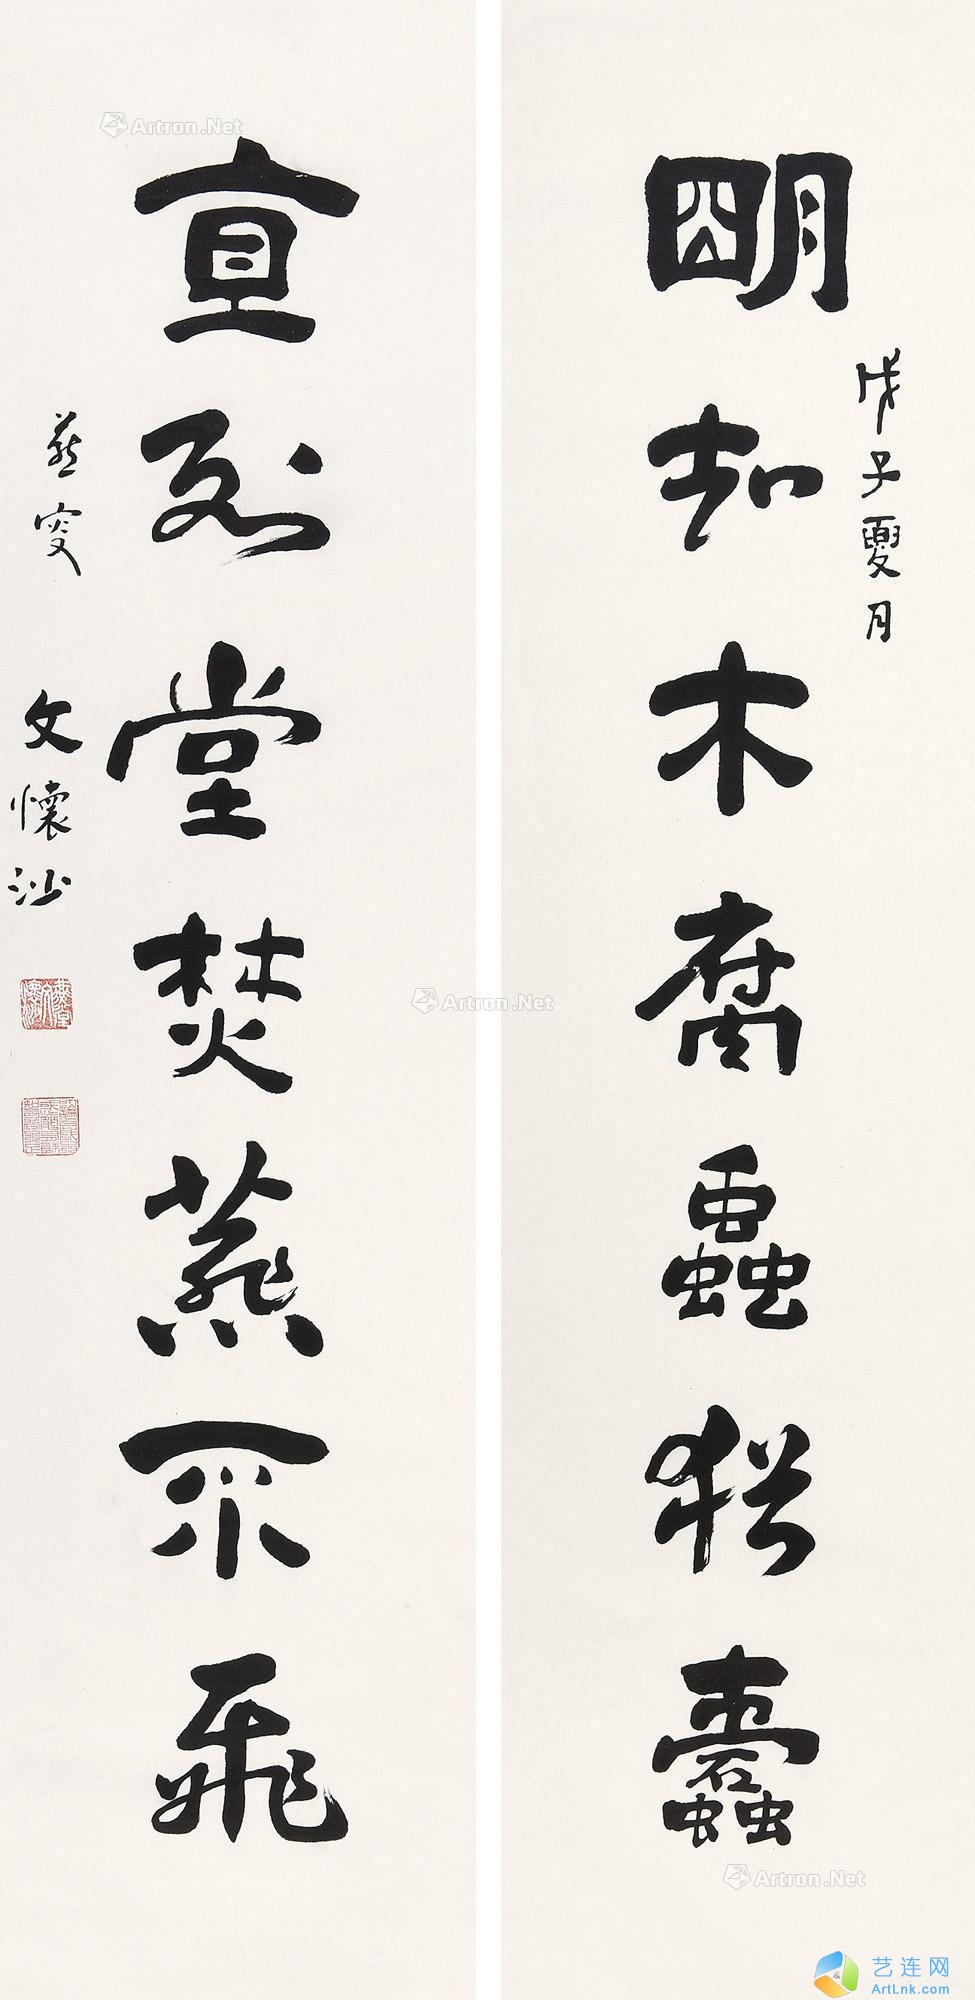 明知木腐蟲猶蠹
戊子夏月
直到堂焚燕不飛
燕叟
文懷沙
Artron.Net
Artron.Net
Artron.Net
艺连网
ArtLnk.com